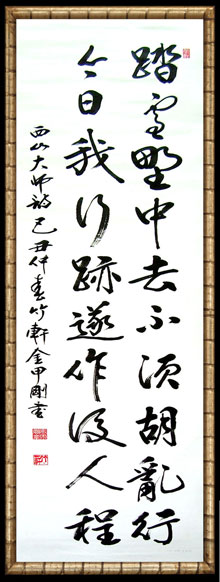 踏雪野中去不須胡亂行
今日我行跡遂作後人程
西山大師詩 己丑仲春 竹軒 金甲剛書